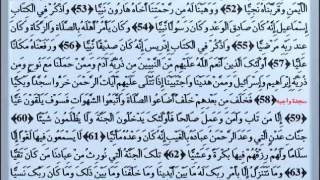 الأيمن وقربناه نجيا ﴿52﴾ ووهبنا له من رحمتنا أخاه هارون نبيا ﴿53﴾ واذكر في الكتاب
إسماعيل إنه كان صادق الوعد وكان رسولا نبيا ﴿54﴾ وكان يأمر أهله بالصلاة والزكاة وكان
عند ربه مرضيا ﴿55﴾ واذكر في الكتاب إدريس إنه كان صديقا نبيا ﴿56﴾ ورفعناه مكانا
عليا ﴿57﴾ أولئك الذين أنعم الله عليهم من النبيين من ذرية آدم وممن حملنا مع نوح ومن
ذرية إبراهيم وإسرائيل وممن هدينا واجتبينا إذا تتلى عليهم آيات الرحمن خروا سجدا وبكيا
سجدة واجبة ﴿58﴾ فخلف من بعدهم خلف أضاعوا الصلاة واتبعوا الشهوات فسوف يلقون غيا
﴿59﴾ إلا من تاب وآمن وعمل صالحا فأولئك يدخلون الجنة ولا يظلمون شيئا ﴿60﴾
جنات عدن التي وعد الرحمن عباده بالغيب إنه كان وعده مأتيا ﴿61﴾ لا يسمعون فيها لغوا إلا
سلاما ولهم رزقهم فيها بكرة وعشيا ﴿62﴾ تلك الجنة التي نورث من عبادنا من كان تقيا
﴿63﴾ وما نتنزل إلا بأمر ربك له ما بين أيدينا وما خلفنا وما بين ذلك وما كان ربك نسيا